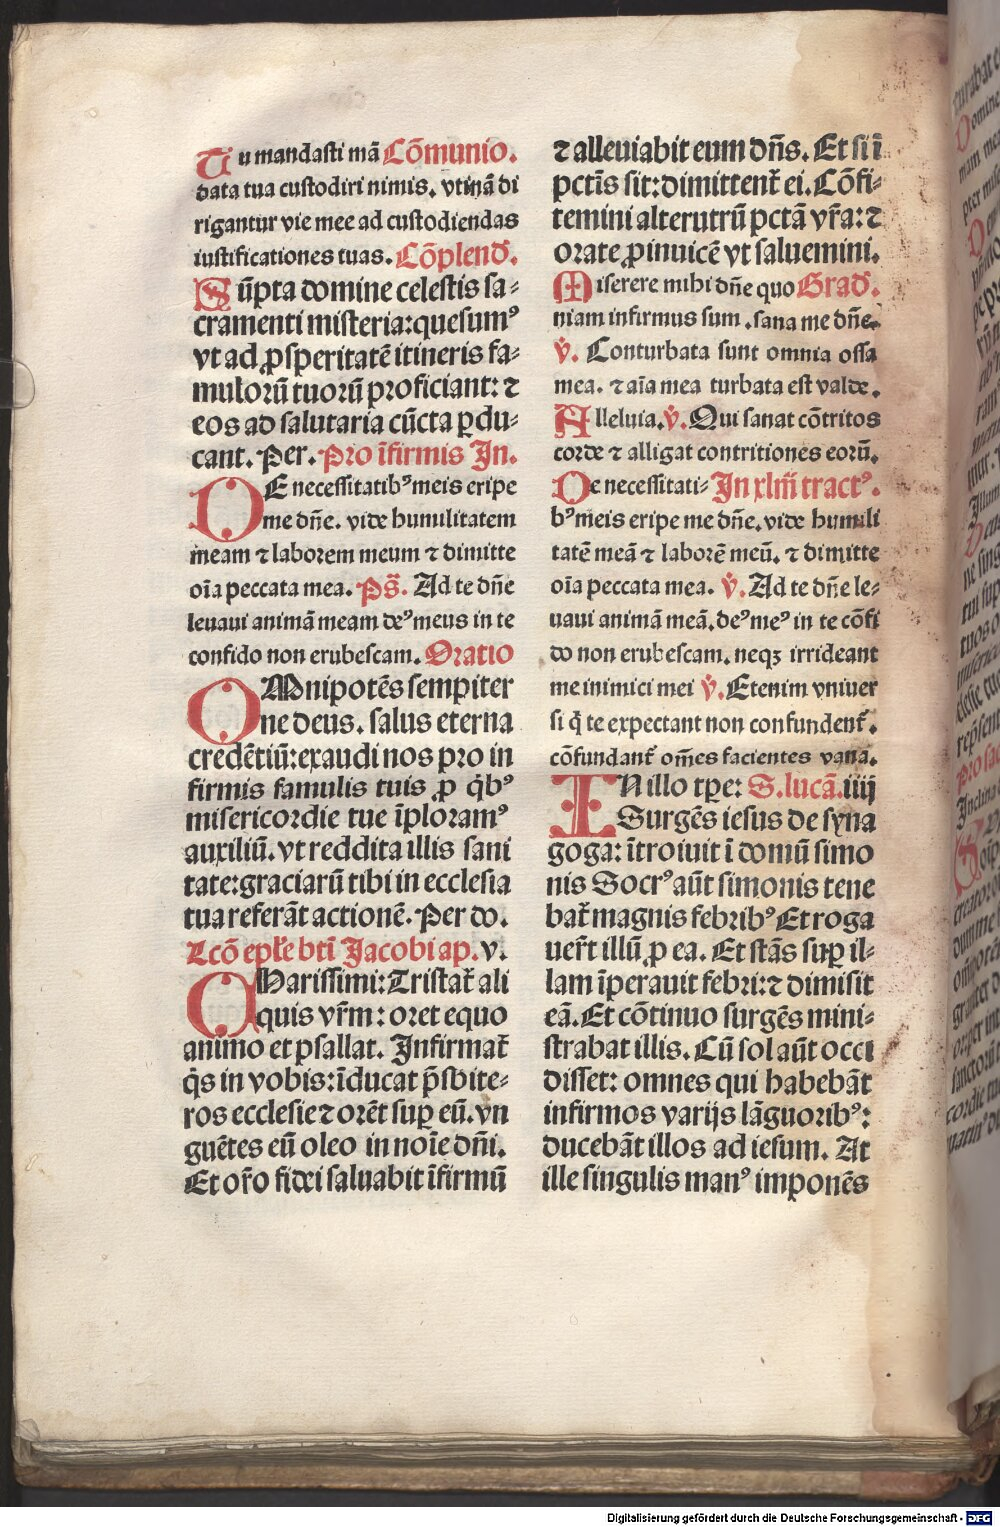 Tu mandasti mā Cōmunio.
data tua custodiri nimis. vtinā di
rigantur vie mee ad custodiendas
iustificationes tuas. Cōplend̄.
Sūpta domine celestis sa⸗
cramenti misteria: quesumꝰ
vt ad ꝓsperitatē itineris fa⸗
mulorū tuorū proficiant: ⁊
eos ad salutaria cūcta ꝑdu⸗
cant. Per. Pro īfirmis In.
DE necessitatibꝰ meis eripe
me dn̄e. vide humilitatem
meam ⁊ laborem meum ⁊ dimitte
oīa peccata mea. Ps̄. Ad te dn̄e
leuaui animā meam deꝰ meus in te
confido non erubescam. Oratio
OMnipotēs sempiter
ne deus. salus eterna
credētiū: exaudi nos pro in
firmis famulis tuis ꝓ q̄bꝰ
misericordie tue īploramꝰ
auxiliū. vt reddita illis sani
tate: graciarū tibi in ecclesia
tua referāt actionē. Per do.
Lcō ep̄le bt̄i Jacobi ap. v.
CHarissimi: Tristat̄ ali
quis vr̄m: oret equo
animo et psallat. Infirmat̄
q̄s in vobis: īducat p̄sbite⸗
ros ecclesie ⁊ orēt suꝑ eū. vn
guētes eū oleo in noīe dn̄i.
Et or̄o fidei saluabit īfirmū
⁊ alleuiabit eum dn̄s. Et si ī
pctīs sit: dimittent̄ ei. Cōfi⸗
temini alterutrū pctā vr̄a: ⁊
orate ꝓinuicē vt saluemini.
Miserere mihi dn̄e quo Grad̄.
niam infirmus sum. sana me dn̄e.
v̄. Conturbata sunt omnia ossa
mea. ⁊ aīa mea turbata est valde.
Alleluia. v̄. Qui sanat cōtritos
corde ⁊ alligat contritiones eorū.
De necessitati⸗ In xlm̄ tractꝰ.
bꝰ meis eripe me dn̄e. vide humili
tatē meā ⁊ laborē meū. ⁊ dimitte
oīa peccata mea. v̄. Ad te dn̄e le⸗
uaui animā meā. deꝰ meꝰ in te cōfi
do non erubescam. neqꝫ irrideant
me inimici mei v̄. Etenim vniuer
si q̄ te expectant non confundent̄.
cōfundant̄ om̄es facientes vana.
IN illo tꝑe: S. lucā. iiij
Surgēs iesus de syna
goga: ītroiuit ī domū simo
nis Socrꝰ aūt simonis tene
bat̄ magnis febribꝰ Et roga
uer̄t illū ꝓ ea. Et stās suꝑ il⸗
lam īperauit febri: ⁊ dimisit
eā. Et cōtinuo surgēs mini⸗
strabat illis. Cū sol aūt occi
disset: omnes qui habebāt
infirmos varijs lāguoribꝰ:
ducebāt illos ad iesum. At
ille singulis manꝰ imponēs
Digitalisierung gefördert durch die Deutsche Forschungsgemeinschaft - DFG